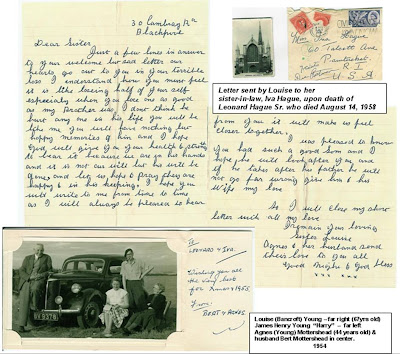 30 Cambray Rd
Blackpool
Dear Sister,
Just a few lines in answer
to your welcome but sad letter our
hearts go out to you in your terrible
loss I understand how you must feel
it is like losing half of your self
especially when you love one as good
as my Brother was I don't think he
hurt any one in his life you will be
like me you will have nothing but
happy memories of him and I hope
God will give you your health & strength
to bear it because we are in his hands
and it is not our will but his will be
done and let us hope & pray they are
happy & in his keeping. I hope you
will write to me from time to time
as I will always be pleased to hear
Mrs Iva
Hague
60 Talcott Ave
Pawtucket
R I
U.S.A
Letter sent by Louise to her
sister-in-law, Iva Hague, upon death of
Leonard Hague Sr. who died August 14, 1958
from you it will make us feel
closer together, I was pleased to know
you had such a good Son and I
hope he will look after you and
if he takes after his father he will
not go far wrong give him & his
Wife my love
So I will close my short
letter with all my love
I remain your loving
sister Louise
Agnes & her husband send
their love to you all
Good Night & God bless
To
LEONARD & IVA.
Wishing you all
the very best
for Xmas 1954.
From
BERT & AGNES.
BV 9378
Louise (Bancroft) Young –far right (67yrs old)
James Henry Young "Harry" – far left
Agnes (Young) Mottershead (44 years old) &
husband Bert Mottershead in center.
1954